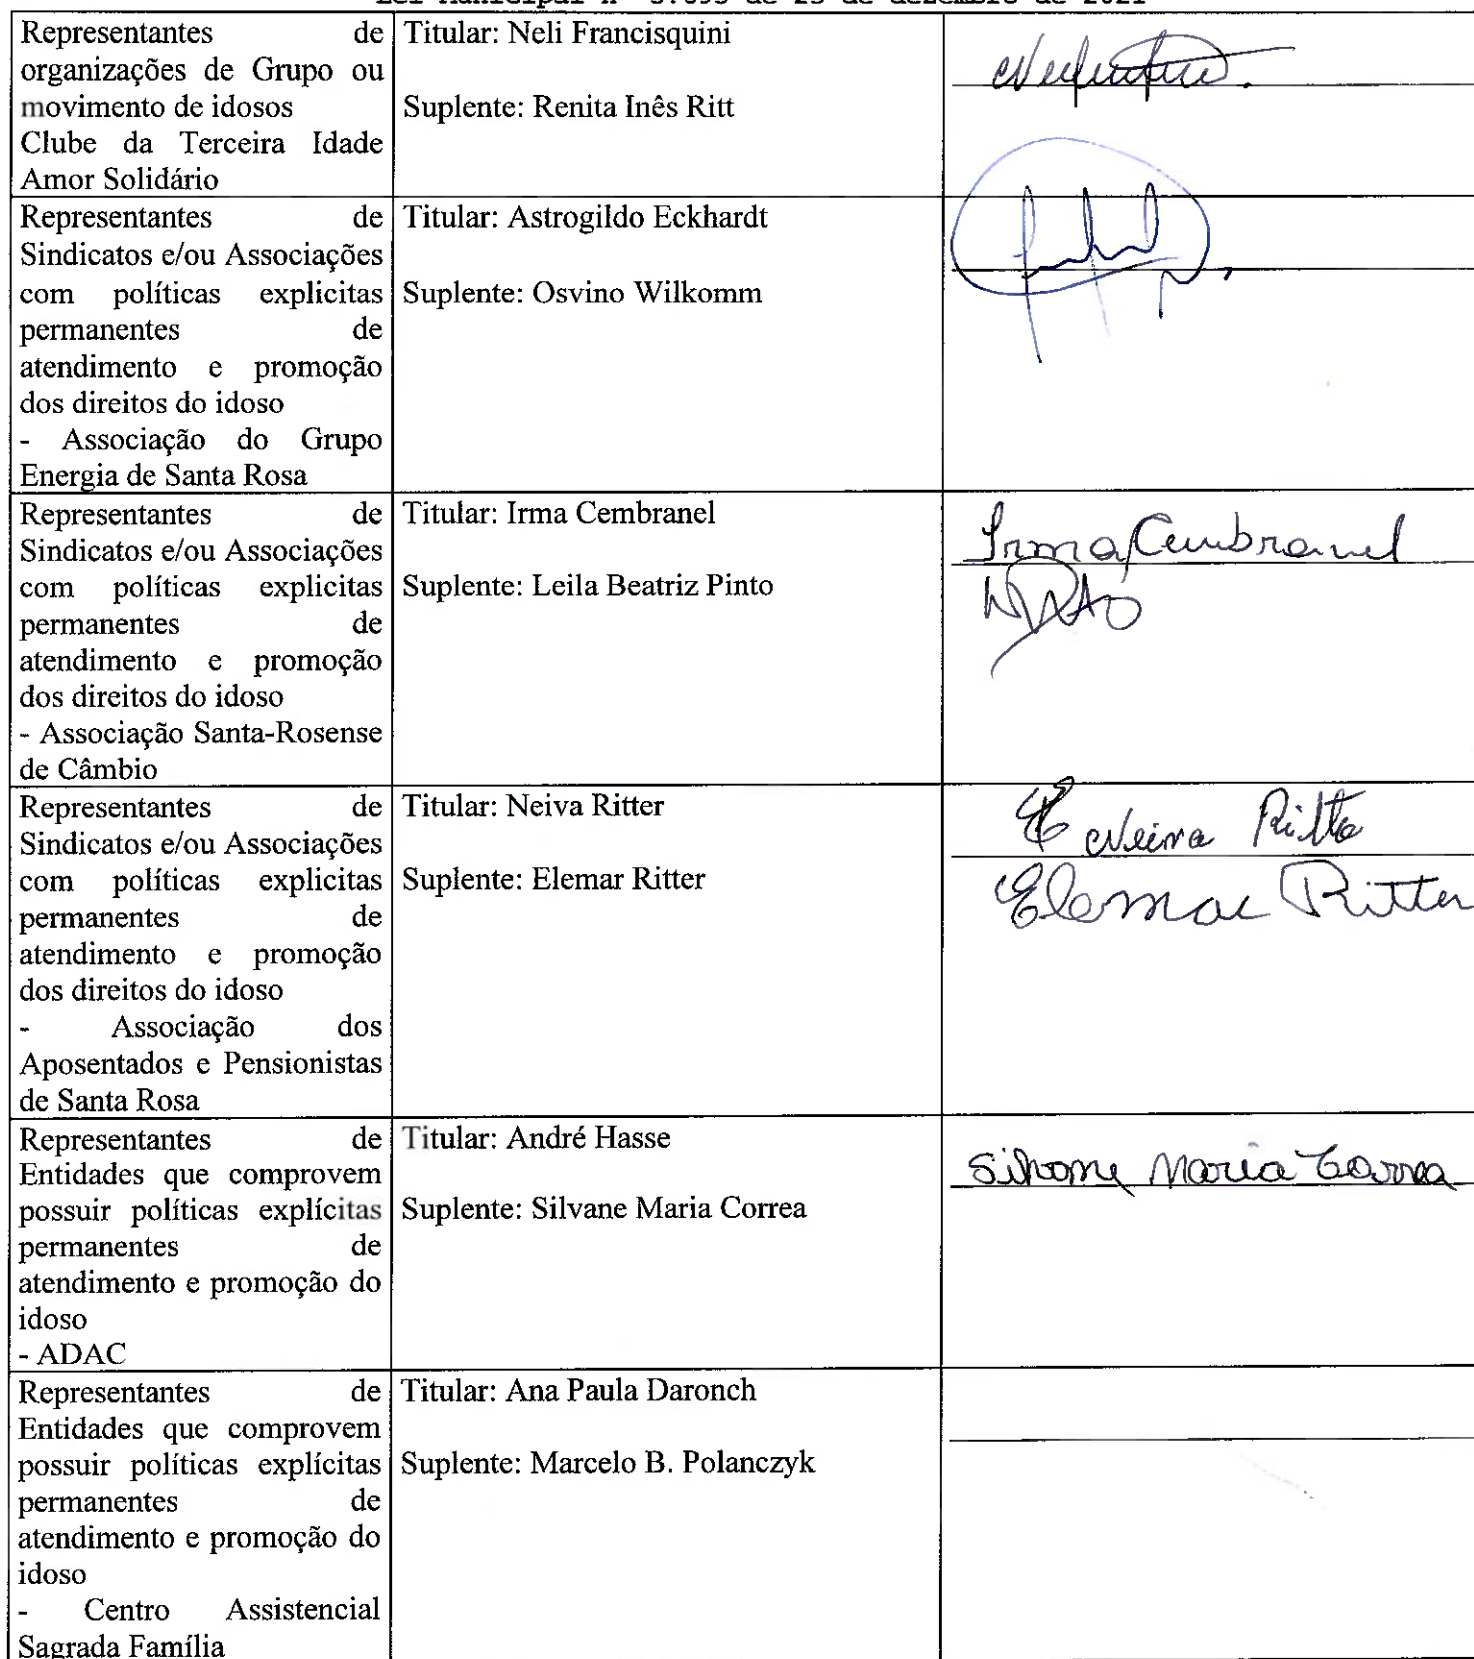 Lei Municipal nº 5.693 de 23 de dezembro de 2021
Representantes de
organizações de Grupo ou
movimento de idosos
Clube da Terceira Idade
Amor Solidário
Titular: Neli Francisquini
Suplente: Renita Inês Ritt
Representantes de
Sindicatos e/ou Associações
com políticas explicitas
permanentes de
atendimento e promoção
dos direitos do idoso
- Associação do Grupo
Energia de Santa Rosa
Titular: Astrogildo Eckhardt
Suplente: Osvino Wilkomm
Representantes de
Sindicatos e/ou Associações
com políticas explicitas
permanentes de
atendimento e promoção
dos direitos do idoso
- Associação Santa-Rosense
de Câmbio
Titular: Irma Cembranel
Suplente: Leila Beatriz Pinto
Irma Cembranel
Representantes de
Sindicatos e/ou Associações
com políticas explicitas
permanentes de
atendimento e promoção
dos direitos do idoso
- Associação dos
Aposentados e Pensionistas
de Santa Rosa
Titular: Neiva Ritter
Suplente: Elemar Ritter
Neiva Ritter
Elemar Ritter
Representantes de
Entidades que comprovem
possuir políticas explícitas
permanentes de
atendimento e promoção do
idoso
- ADAC
Titular: André Hasse
Suplente: Silvane Maria Correa
Silvane Maria Correa
Representantes de
Entidades que comprovem
possuir políticas explícitas
permanentes de
atendimento e promoção do
idoso
- Centro Assistencial
Sagrada Família
Titular: Ana Paula Daronch
Suplente: Marcelo B. Polanczyk